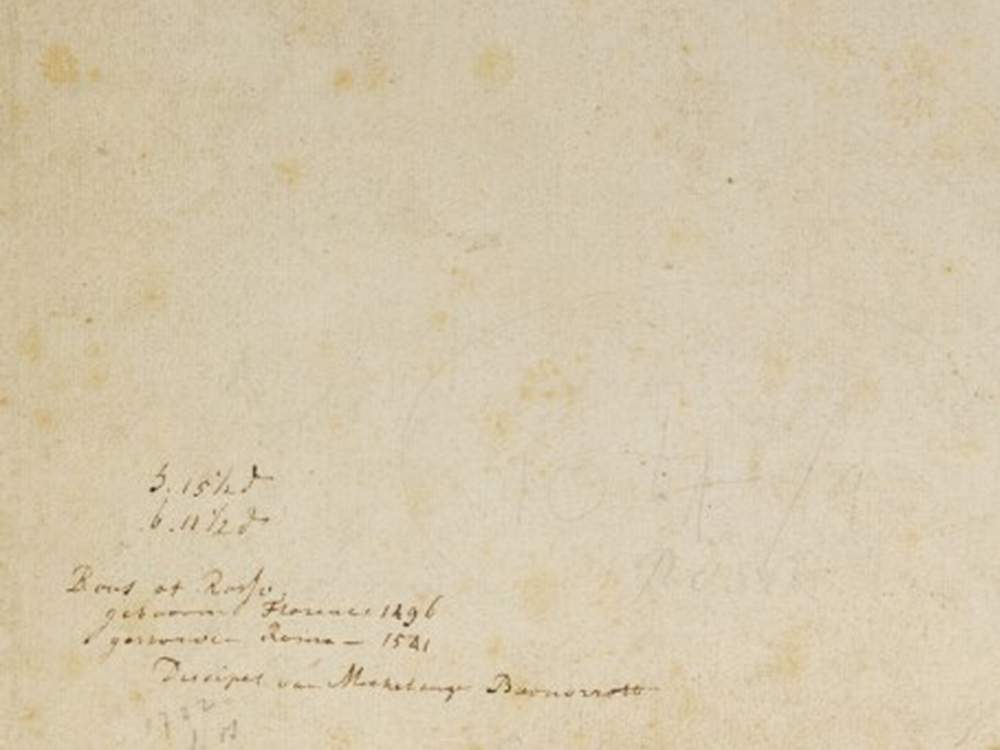 h. 15½ d
b. 11½ d
Rous of Rosso,
gebooren Florence 1496
gestorven Roma — 1541
Discipel van Michelange Buonorroti